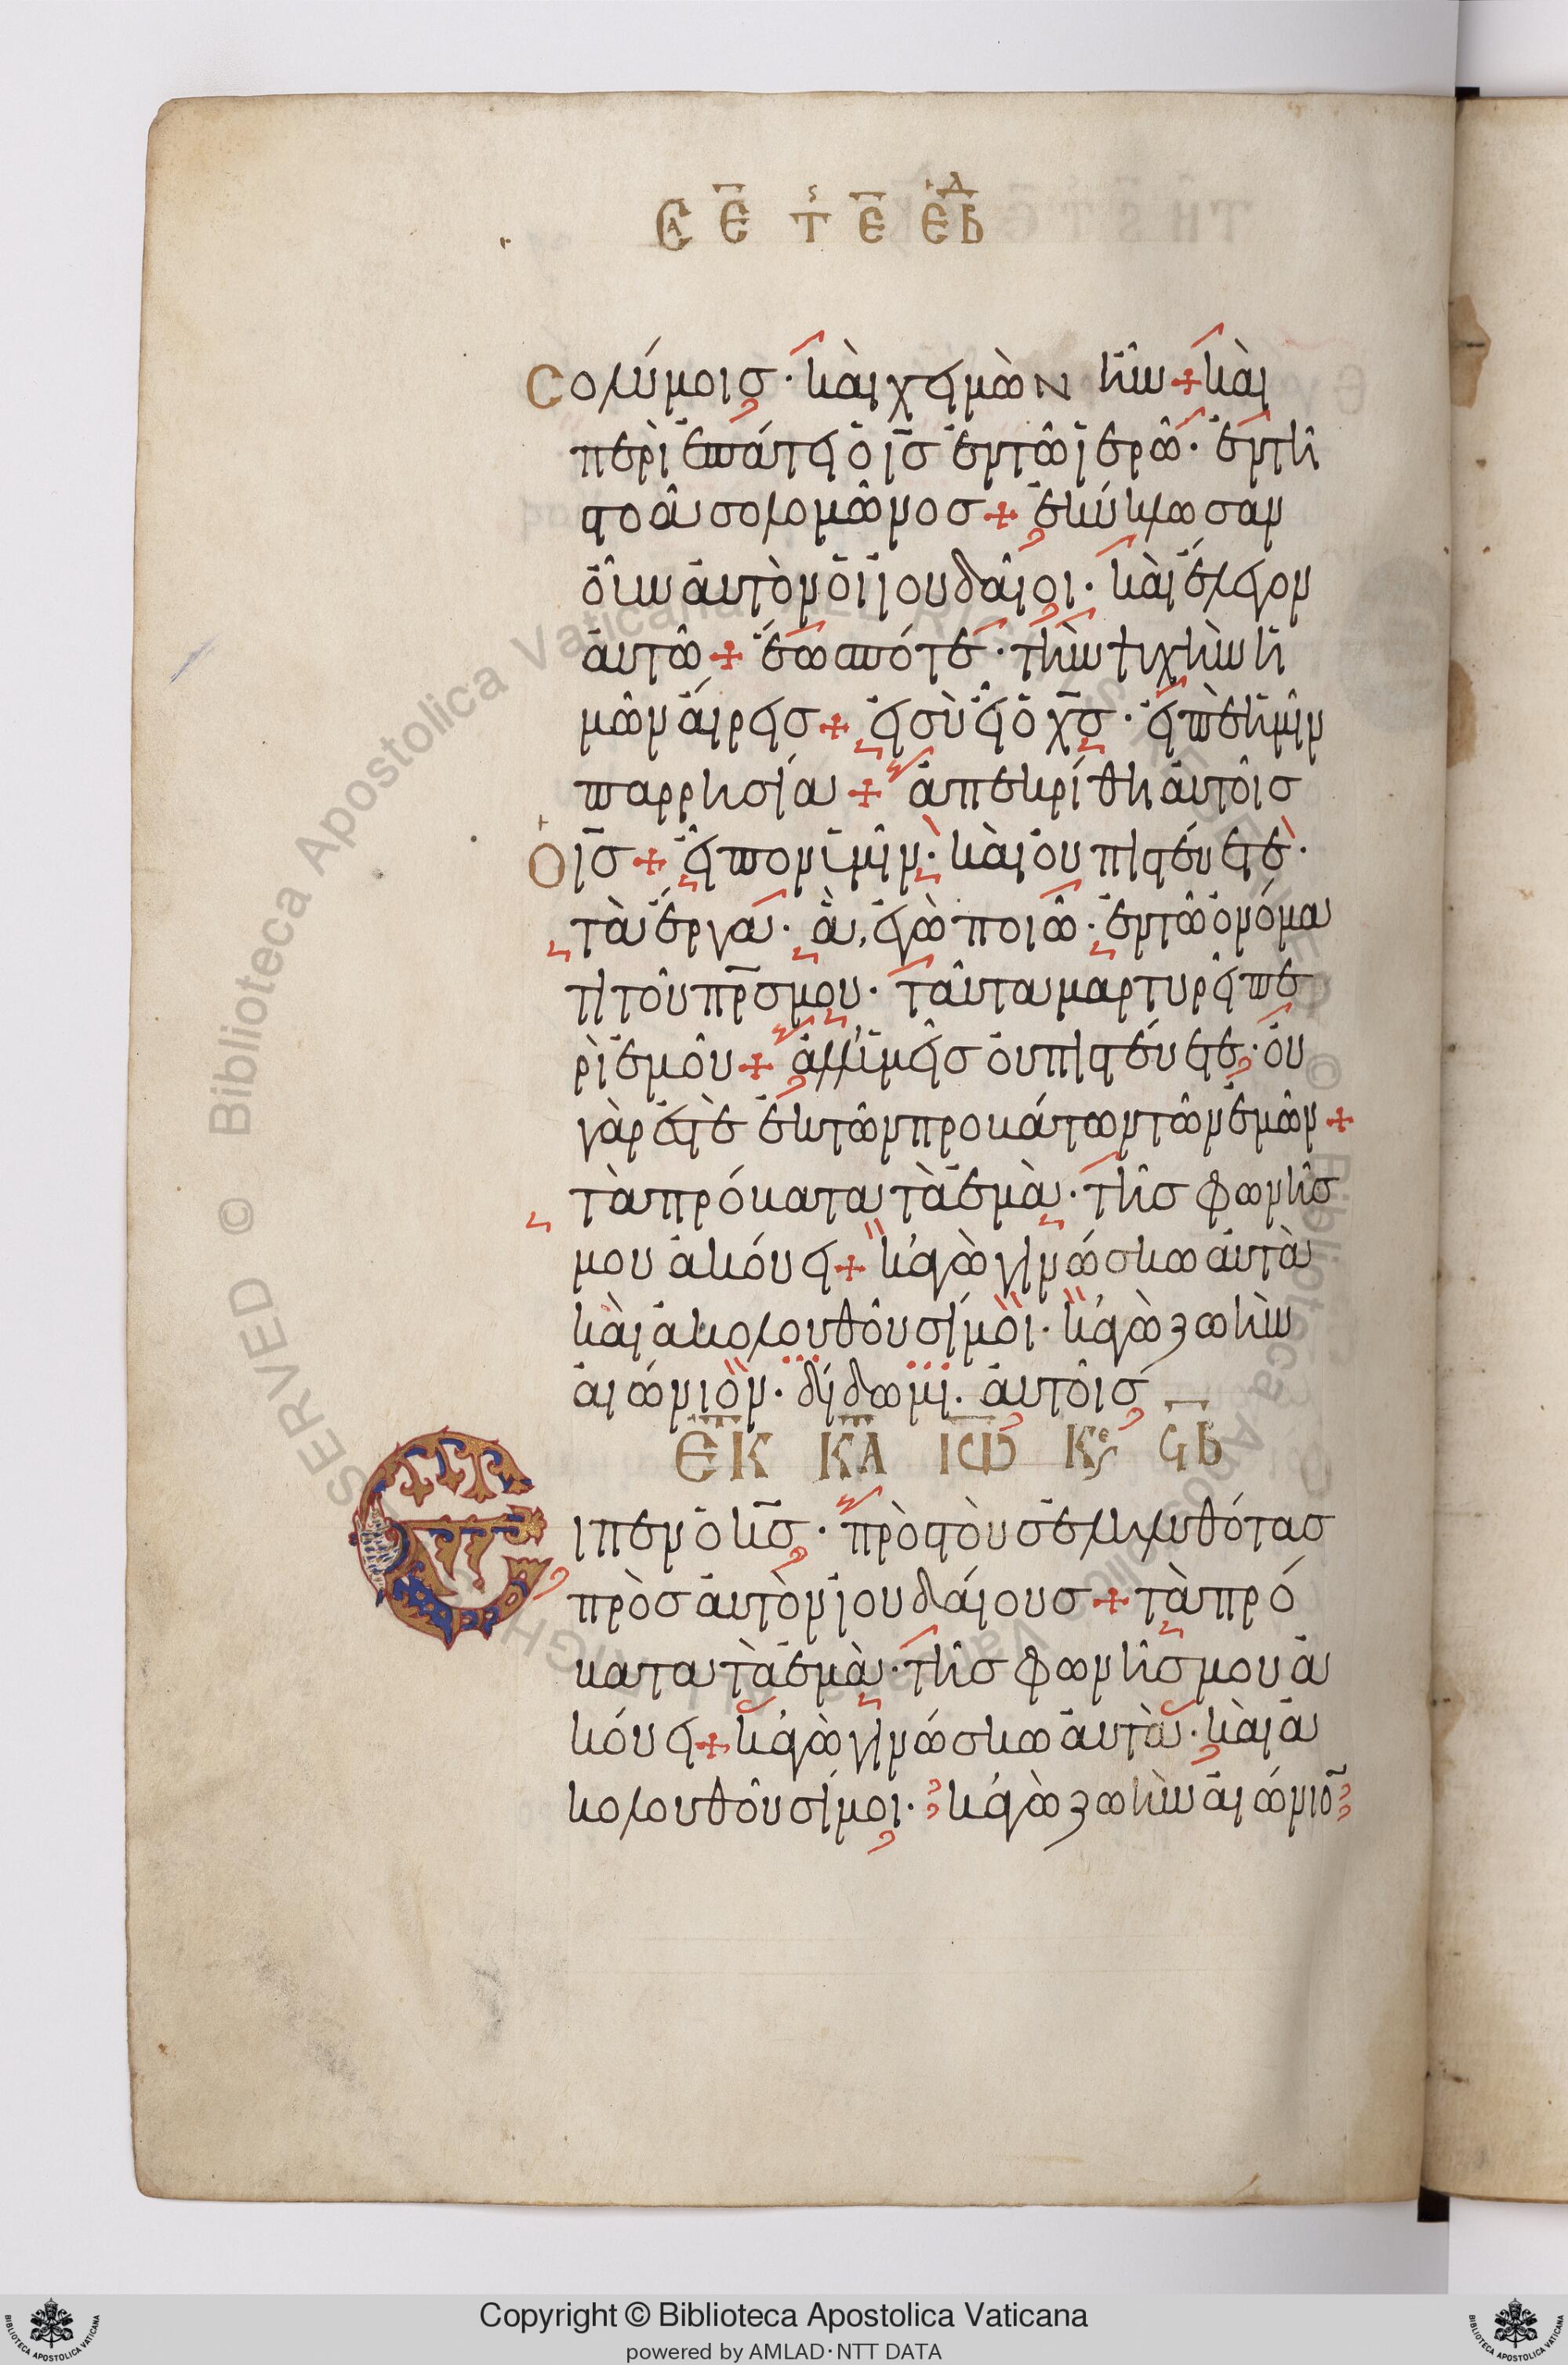 σολύμοις· καὶ χειμὼν ἦν + καὶ
περιεπάτει ὁ ι̅ς̅ ἐν τῶ ἱερῶ· ἐν τῆ
στοᾶ σολομῶνος + ἐκύκλωσαν
οὖν αὐτὸν οἱ ἰουδαῖοι· καὶ ἔλεγον
αὐτῶ + ἕως πότε· τὴν ψυχὴν ἡ
μῶν αἴρεις + εἰ σὺ εἶ ὁ χ̅ς̅· εἰπὲ ἡμῖν
παρρησία + ἀπεκρίθη αὐτοῖς
ὁ ι̅ς̅ + εἶπον ὑμῖν· καὶ οὐ πιστεύετε·
τὰ ἔργα· ἃ ἐγὼ ποιῶ· ἐν τῶ ὀνόμα
τι τοῦ π̅ρ̅ς̅ μου· ταῦτα μαρτυρεῖ πε
ρὶ ἐμοῦ + ἀλλ' ὑμεῖς οὐ πιστεύετε· οὐ
γάρ ἐστὲ ἐκ τῶν προβάτων τῶν ἐμῶν +
τὰ πρόβατα τὰ ἐμὰ· τῆς φωνῆς
μου ἀκούει + κἀγὼ γινώσκω αὐτὰ
καὶ ἀκολουθοῦσί μοι· κἀγὼ ζωὴν
αἰώνιον· δίδωμι· αὐτοῖς
εἶπεν ὁ κ̅ς̅· πρὸς τοὺς ἐληλυθότας
πρὸς αὐτὸν ἰουδαίους + τὰ πρό
βατα τὰ ἐμὰ· τῆς φωνῆς μου ἀ
κούει + κἀγὼ γινώσκω αὐτὰ· καὶ ἀ
κολουθοῦσί μοι· κἀγὼ ζωὴν αἰώνιο̅
Copyright © Biblioteca Apostolica Vaticana
powered by AMLAD·NTT DATA